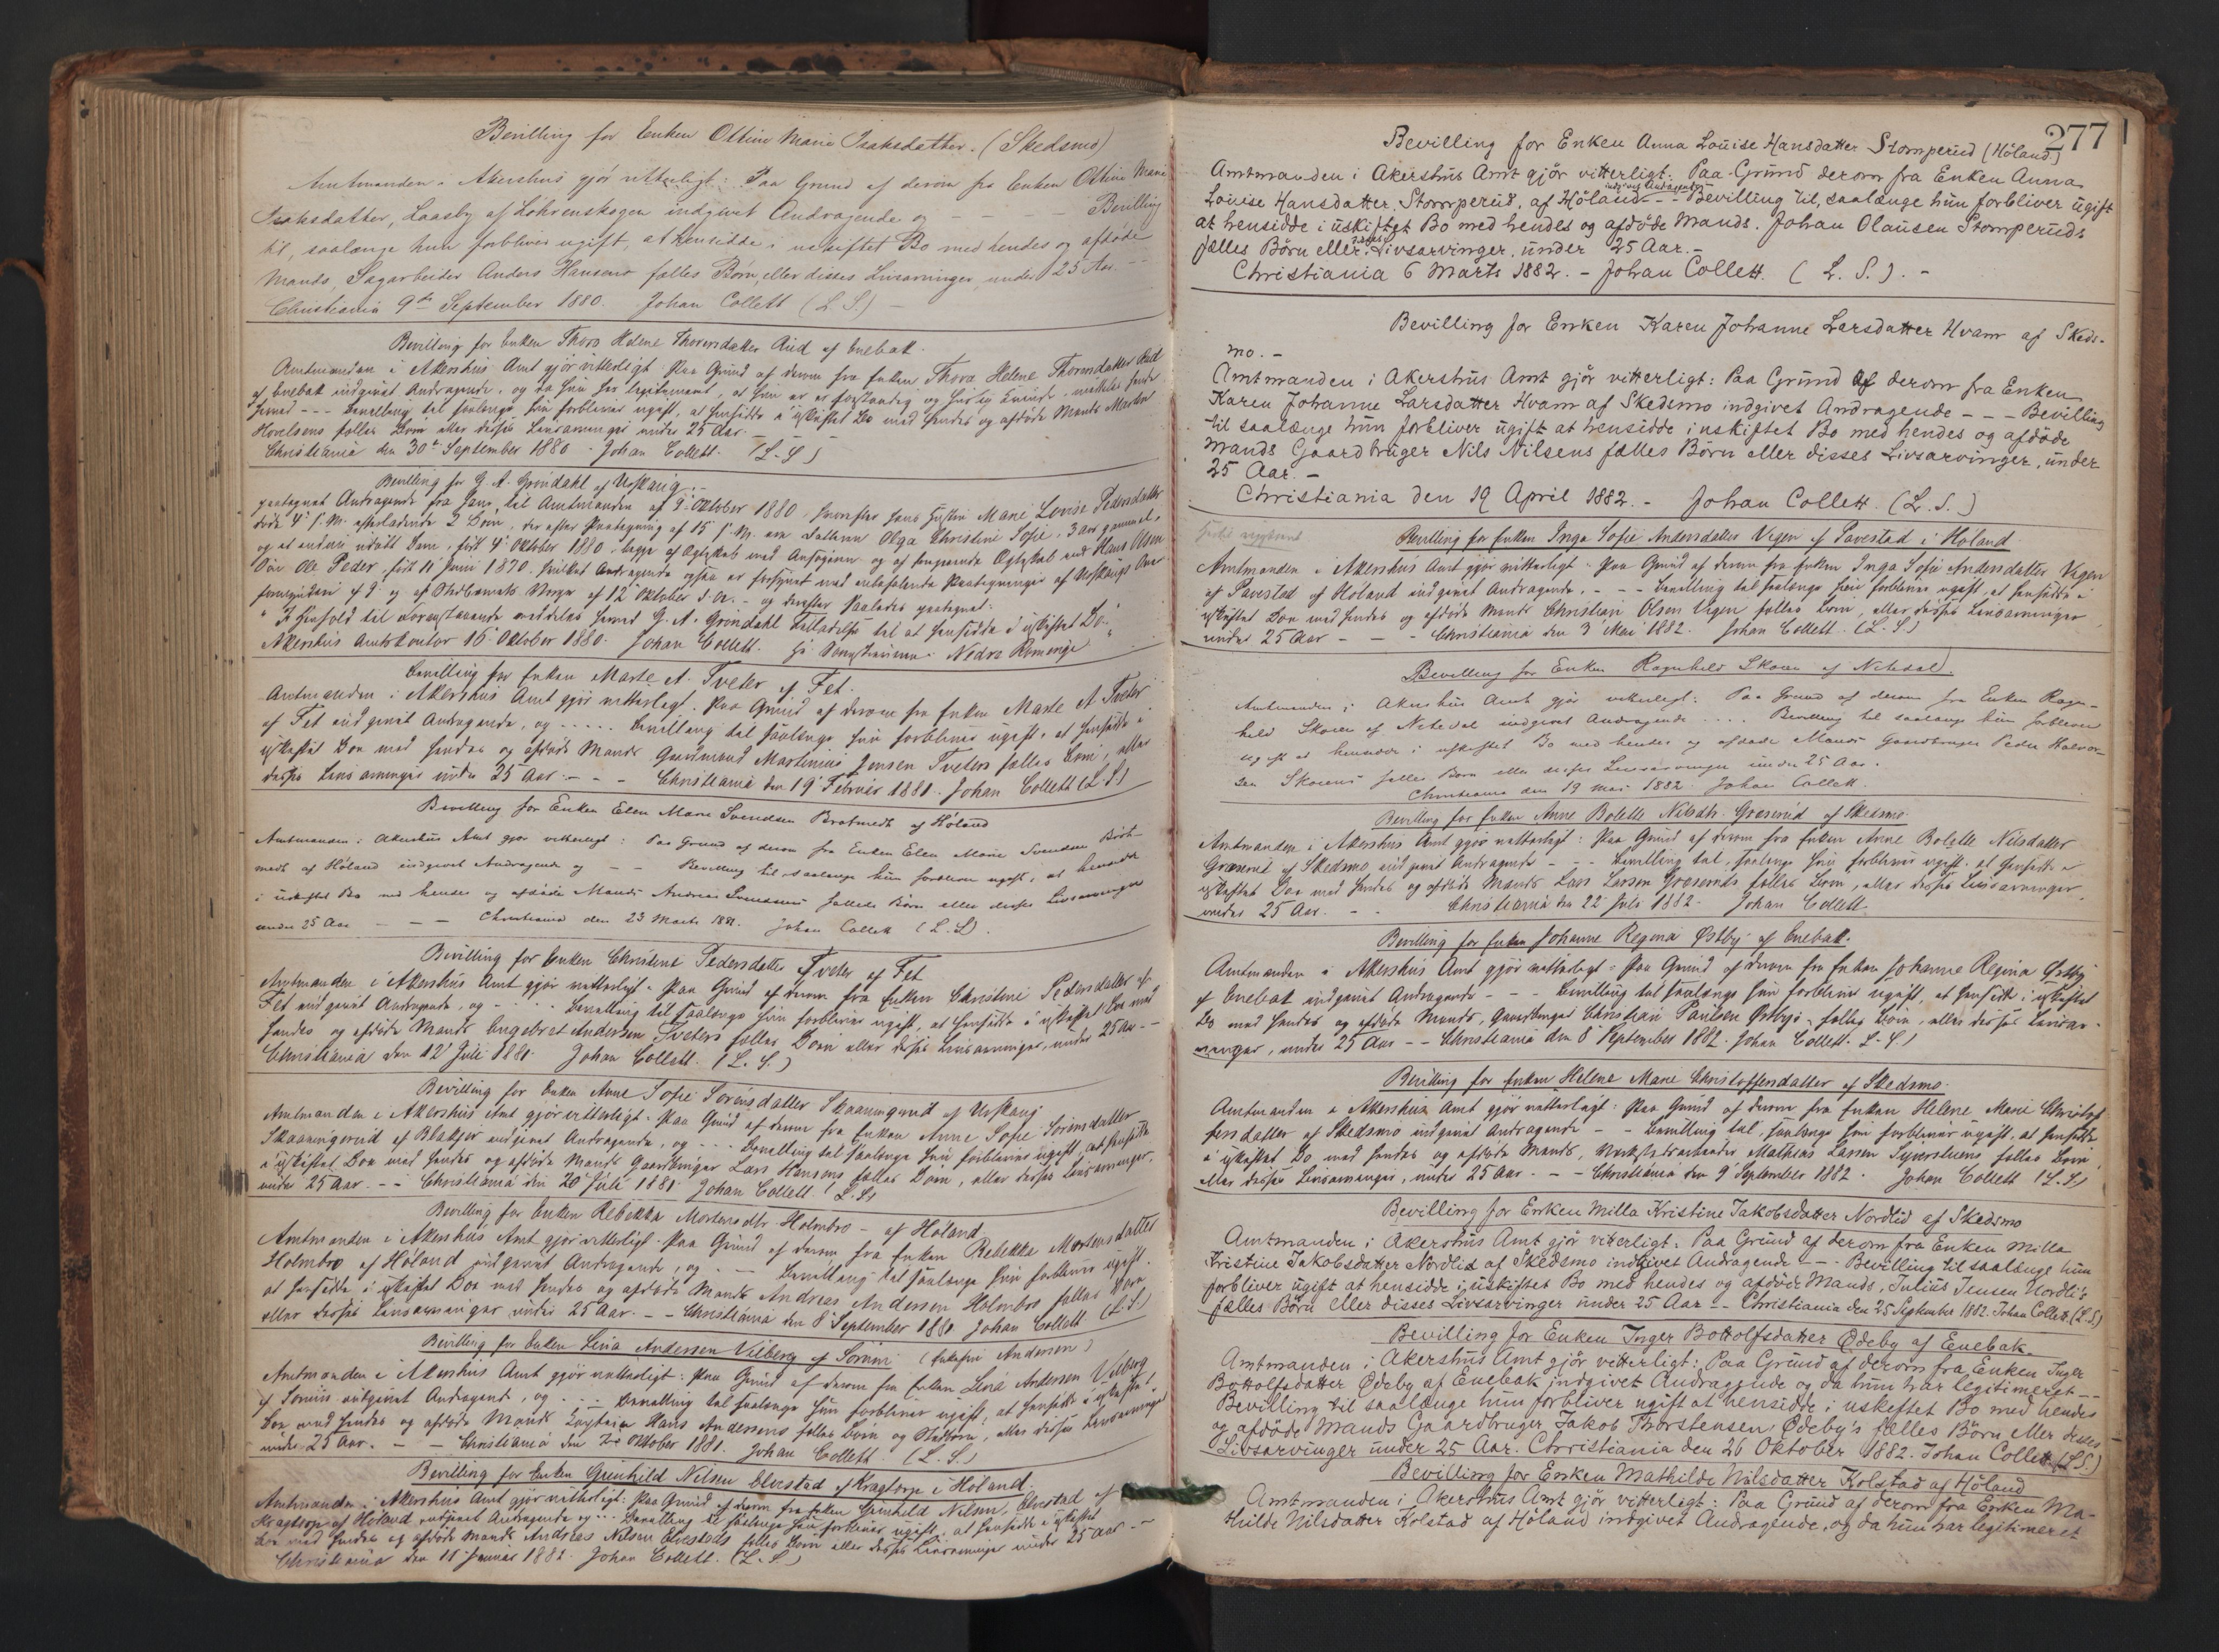 Bevilling for Enken Oltine Marie Isaksdatter. (Skedsmo)
Amtmanden i Akershus gjør vitterligt: Paa Grund af derom fra Enken Oltine Marie
Isaksdatter, Laasby af Løhrenskogen indgivet Andragende og - - - Bevilling
til, saalænge hun forbliver ugift, at hensidde i uskiftet Bo med hendes og afdøde
Mands, Sagarbeider Anders Hansens fælles Børn, eller disses Livsarvinger, under 25 Aar. -
Christiania 9de September 1880. Johan Collett (L. S.)
Bevilling for Enken Thora Helene Thorsdatter Rud af Enebak.
Amtmanden i Akershus Amt gjör vitterligt: Paa Grund af derom fra Enken Thora Helene Thorsdatter Rud
af Enebak indgivet Andragende, og da hun har legitimeret, at hun er en forstandig og huslig Kvinde, meddeles hende
herved - - - Bevilling til saalænge hun forbliver ugift, at hensidde i uskiftet Bo med hendes og afdöde Mands Martin
Hovelsens fælles Börn eller disses Livsarvinger under 25 Aar. -
Christiania den 30te September 1880. Johan Collett. (L. S.)
Bevilling for G. A. Gröndahl af Urskoug. -
paategnet Andragende fra ham til Amtmanden af 8 Oktober 1880, hvorefter hans Hustru Marie Lovise Pedersdatter
döde 4 f. M. efterladende 2 Börn, der efter Paategning af 15 f. M. ere Datteren Olga Christine Sofie, 3 Aar gammel,
og et endnu udöbt Barn, födt 4 Oktober 1880, begge af Ægteskab med Ansögeren og af foregaaende Ægteskab med Hans Olsen
Sön Ole Peder, födt 11 Juni 1870. Hvilket Andragende ogsaa er forsynet med anbefalende Paategninger af Urskougs Over-
formynderi f. D. og af Skifteretten af 12 Oktober d. A. - og derefter saaledes paategnet:
" I Henhold til Foranstaaende meddeles herved G. A. Gröndahl Tilladelse til at hensidde i uskiftet Bo."
Akershus Amtskontor 16 Oktober 1880. Johan Collett. Til Sorenskriveren i Nedre Romerige
Bevilling for Enken Marte A. Tveter af Fet.
Amtmanden i Akershus Amt gjör vitterligt: Paa Grund af derom fra Enken Marte A. Tveter
af Fet indgivet Andragende, og - - - Bevilling til saalænge hun forbliver ugift, at hensidde i
uskiftet Bo med hendes og afdöde Mands Gaardmand Martinius Jensen Tveters fælles Börn, eller
disses Livsarvinger under 25 Aar. - - - Christiania den 19 Februar 1881. Johan Collett (L. S.)
Bevilling for Enken Elen Marie Svendsen Bratmedt af Høland
Amtmanden i Akershus Amt gjør vitterligt: Paa Grund af derom fra Enken Elen Marie Svendsen Brat-
medt af Høland indgivet Andragende og - - Bevilling til saalænge hun forbliver ugift, at hensidde
i uskiftet Bo med hendes og afdøde Mands Andreas Svendsens fælleds Børn eller disses Livsarvinger
under 25 Aar - - - Christiania den 23 Marts 1881. Johan Collett (L. S).
Bevilling for Enken Christine Pedersdatter Tveter af Fet
Amtmanden i Akershus Amt gjör vitterligt: Paa Grund af derom fra Enken Christine Pedersdatter af
Fet indgivet Andragende, og - - - Bevilling til saalænge hun forbliver ugift, at hensidde i uskiftet Bo med
hendes og afdöde Mands Engebret Andersen Tveters fælles Börn eller disses Livsarvinger, under 25 Aar - -
Christiania den 12 Juli 1881. Johan Collett. (L. S.)
Bevilling for Enken Anne Sofie Sörensdatter Skaanningsrud af Urskoug
Amtmanden i Akershus Amt gjör vitterligt: Paa Grund af derom fra Enken Anne Sofie Sörensdatter
Skaanningsrud af Blakjer indgivet Andragende, og - - - Bevilling til saalænge hun forbliver ugift, at hensidde
i uskiftet Bo med hendes og afdöde Mands Gaardbruger Lars Hansens fælles Börn, eller disses Livsarvinger,
under 25 Aar. - - Christiania den 20 Juli 1881. Johan Collett (L. S.)
Bevilling for Enken Rebekka Mortensdtr Holmbro - af Höland
Amtmanden i Akershus Amt gjör vitterligt: Paa Grund af derom fra Enken Rebekka Mortensdatter
Holmbro af Höland indgivet Andragende, og - - - Bevilling til saalænge hun forbliver ugift
at hensidde i uskiftet Bo med hendes og afdöde Mands Andreas Andersen Holmbros fælles Börn
eller disses Livsarvinger under 25 Aar. - - Christiania den 8 September 1881 Johan Collett (L. S.)
Bevilling for Enken Lina Andersen Vilberg af Sörum (Enkefru Andersen)
Amtmanden i Akershus Amt gjör vitterligt: Paa Grund af derom fra Enken Lina Andersen Vilberg
af Sörum indgivet Andragende, og - - - Bevilling til saalænge hun forbliver ugift, at hensidde i uskiftet
Bo med hendes og afdöde Mands Kaptein Hans Andersens fælles Börn og Stedbörn, eller disses Livsarvinger
under 25 Aar. - - Christiania den 7de Oktober 1881. Johan Collett. (L. S.)
Bevilling for Enken Gunhild Nilsen Elvestad af Kragtorp i Höland.
Amtmanden i Akershus Amt gjör vitterligt: Paa Grund af derom fra Enken Gunhild Nilsen Elvestad af
Kragtorp af Höland indgivet Andragende og - - - Bevilling til saalænge hun forbliver ugift at hensidde i uskiftet
Bo med hendes og afdöde Mands Andreas Nilsen Elvestads fælles Börn eller disses Livsarvinger under 25 Aar - -
Christiania den 11 Januar 1882. Johan Collett. (L. S.)
277
Bevilling for Enken Anna Louise Hansdatter Stomperud (Höland)
Amtmanden i Akershus Amt gjör vitterligt: Paa Grund derom fra Enken Anna
Louise Hansdatter, Stomperud, af Höland indgivet Andragende - - - Bevilling til, saalænge hun forbliver ugift
at hensidde i uskiftet Bo med hendes og afdöde Mands. Johan Olausen Stomperuds
fælles Börn eller disses Livsarvinger, under 25 Aar. -
Christiania 6 Marts 1882. - Johan Collett. (L. S.). -
Bevilling for Enken Karen Johanne Larsdatter Hvam af Skeds-
mo. -
Amtmanden i Akershus Amt gjör vitterligt: Paa Grund af derom fra Enken
Karen Johanne Larsdatter Hvam af Skedsmo indgivet Andragende - - - Bevilling
til saalænge hun forbliver ugift at hensidde i uskiftet Bo med hendes og afdöde
Mands Gaardbruger Nils Nilsens fælles Börn eller disses Livsarvinger, under
25 Aar. -
Christiania den 19 April 1882. - Johan Collett. (L. S.)
Bevilling for Enken Inga Sofie Andersdatter Vegen af Tavestad i Höland
Amtmanden i Akershus Amt gjör vitterligt: Paa Grund af derom fra Enken Inga Sofie Andersdatter Vegen
af Tavestad af Höland indgivet Andragende, - - - Bevilling til saalænge hun forbliver ugift, at hensidde i
uskiftet Bo med hendes og afdöde Mands Christian Olsen Vegen fælles Börn, eller disses Livsarvinger
under 25 Aar - - - Christiania den 3 Mai 1882. Johan Collett. (L. S.)
Bevilling for Enken Ragnhild Skoien af Nitedal.
Amtmanden i Akershus Amt gjør vitterligt: Paa Grund af derom fra Enken Ragn-
hild Skoien af Nitedal indgivet Andragende . . . . Bevilling til saalænge hun forbliver
ugift at hensidde i uskiftet Bo med hendes og afdøde Mands Gaardbruger Peder Halvor-
sen Skoiens fælles Børn eller disses Livsarvinger under 25 Aar.
Christiania den 19 Mai 1882. Johan Collett.
Bevilling for Enken Anne Bolette Nilsdtr. Græsrud af Skedsmo.
Amtmanden i Akershus Amt gjör vitterligt: Paa Grund af derom fra Enken Anne Bolette Nilsdatter
Græsrud af Skedsmo indgivet Andragende - - - Bevilling til, saalænge hun forbliver ugift, at hensidde i
uskiftet Bo med hendes og afdöde Mands Lars Larsen Græsruds fælles Börn, eller disses Livsarvinger,
under 25 Aar. - - Christiania den 22 Juli 1882. Johan Collett.
Bevilling for Enken Johanne Regina Østby af Enebak.
Amtmanden i Akershus Amt gjör vitterligt: Paa Grund af derom fra Enken Johanne Regina Østby
af Enebak indgivet Andragende - - - Bevilling til saalænge hun forbliver ugift, at hensidde i uskiftet
Bo med hendes og afdöde Mands, Gaardbruger Christian Paulsen Østbys fælles Börn, eller disses Livsar-
vinger, under 25 Aar - - Christiania den 8 September 1882. Johan Collett. L. S.)
Bevilling for Enken Helene Marie Christoffersdatter af Skedsmo.
Amtmanden i Akershus Amt gjör vitterligt: Paa Grund af derom fra Enken Helene Marie Christof
fersdatter af Skedsmo indgivet Andragende - - Bevilling til, saalænge hun forbliver ugift, at hensidde
i uskiftet Bo med hendes og afdöde Mands, Værkstedarbeider Mathias Larsen Syverstuens fælles Börn
eller disses Livsarvinger, under 25 Aar. - - Christiania den 9 September 1882. Johan Collett (L. S.)
Bevilling for Enken Milla Kristine Jakobsdatter Nordlid af Skedsmo
Amtmanden i Akershus Amt gjör vitterligt: Paa Grund af derom fra Enken Milla
Kristine Jakobsdatter Nordlid af Skedsmo indgivet Andragende - - - Bevilling til saalænge hun
forbliver ugift at hensidde i uskiftet Bo med hendes og afdöde Mands, Julius Jensen Nordli's
fælles Börn eller disses Livsarvinger under 25 Aar - - Christiania den 25 September 1882. Johan Collett. (L. S.)
Bevilling for Enken Inger Bottolfsdatter Ødeby af Enebak.
Amtmanden i Akershus Amt gjör vitterligt: Paa Grund af derom fra Enken Inger
Bottolfsdatter Ødeby af Enebak indgivet Andragende og da hun har legitimeret - -
Bevilling til saalænge hun forbliver ugift at hensidde i uskiftet Bo med hendes
og afdöde Mands Gaardbruger Jakob Thorstensen Ødeby's fælles Börn eller disses
Livsarvinger under 25 Aar. Christiania den 26 Oktober 1882. Johan Collett (L. S.)
Bevilling for Enken Mathilde Nilsdatter Kolstad af Höland
Amtmanden i Akershus Amt gjör vitterligt: Paa Grund af derom fra Enken Ma-
thilde Nilsdatter Kolstad af Höland indgivet Andragende, og da hun har legitimeret